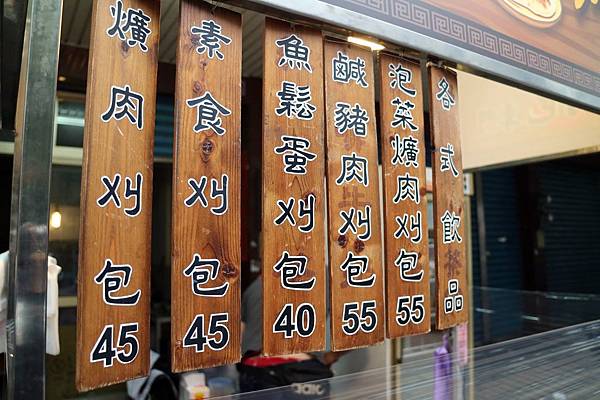 爌肉刈包45
素食刈包45
魚鬆蛋刈包40
鹹豬肉刈包55
泡菜爌肉刈包55
各式飲品